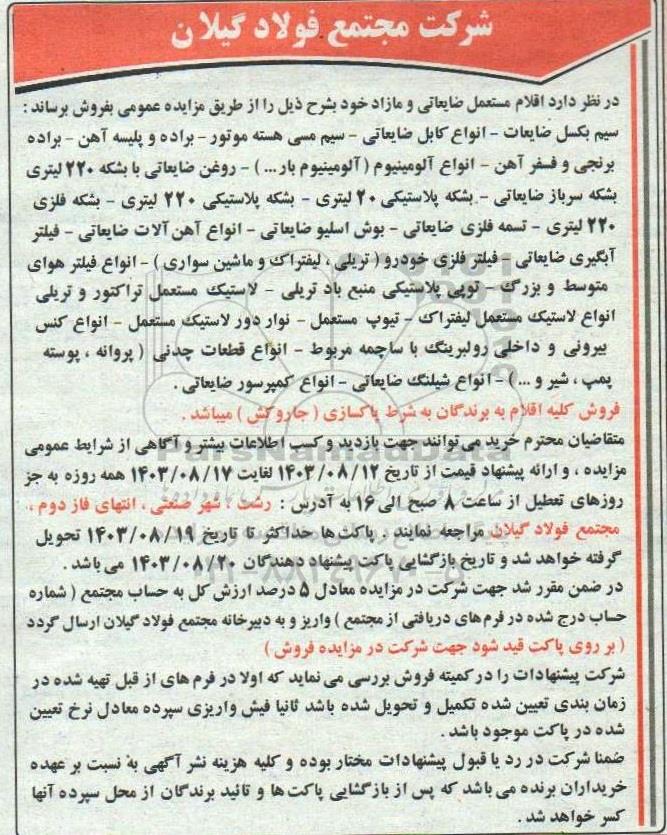 شرکت مجتمع فولاد گیلان
در نظر دارد اقلام مستعمل ضایعاتی و مازاد خود بشرح ذیل را از طریق مزایده عمومی بفروش برساند :
سیم بکسل ضایعات - انواع کابل ضایعاتی - سیم مسی هسته موتور - براده و پلیسه آهن - براده
برنجی و فسفر آهن - انواع آلومینیوم ( آلومینیوم بار... ) - روغن ضایعاتی با بشکه ۲۲۰ لیتری
بشکه سرباز ضایعاتی - بشکه پلاستیکی ۲۰ لیتری - بشکه پلاستیکی ۲۲۰ لیتری - بشکه فلزی
۲۲۰ لیتری - تسمه فلزی ضایعاتی - بوش اسلیو ضایعاتی - انواع آهن آلات ضایعاتی - فیلتر
آبگیری ضایعاتی - فیلتر فلزی خودرو ( تریلی ، لیفتراک و ماشین سواری ) - انواع فیلتر هوای
متوسط و بزرگ - توپی پلاستیکی منبع باد تریلی - لاستیک مستعمل تراکتور و تریلی
انواع لاستیک مستعمل لیفتراک - تیوپ مستعمل - نوار دور لاستیک مستعمل - انواع کنس
بیرونی و داخلی رولبرینگ با ساچمه مربوط - انواع قطعات چدنی ( پروانه ، پوسته
پمپ ، شیر و ... ) - انواع شیلنگ ضایعاتی - انواع کمپرسور ضایعاتی .
فروش کلیه اقلام به برندگان به شرط پاکسازی ( جاروکش ) میباشد .
متقاضیان محترم خرید می‌توانند جهت بازدید و کسب اطلاعات بیشتر و آگاهی از شرایط عمومی
مزایده ، و ارائه پیشنهاد قیمت از تاریخ ۱۴۰۳/۰۸/۱۲ لغایت ۱۴۰۳/۰۸/۱۷ همه روزه به جز
روزهای تعطیل از ساعت ۸ صبح الی ۱۶ به آدرس : رشت ، شهر صنعتی ، انتهای فاز دوم ،
مجتمع فولاد گیلان مراجعه نمایند . پاکت‌ها حداکثر تا تاریخ ۱۴۰۳/۰۸/۱۹ تحویل
گرفته خواهد شد و تاریخ بازگشایی پاکت پیشنهاد دهندگان ۱۴۰۳/۰۸/۲۰ می باشد .
در ضمن مقرر شد جهت شرکت در مزایده معادل ۵ درصد ارزش کل به حساب مجتمع ( شماره
حساب درج شده در فرم های دریافتی از مجتمع ) واریز و به دبیرخانه مجتمع فولاد گیلان ارسال گردد
( بر روی پاکت قید شود جهت شرکت در مزایده فروش )
شرکت پیشنهادات را در کمیته فروش بررسی می نماید که اولا در فرم های از قبل تهیه شده در
زمان بندی تعیین شده تکمیل و تحویل شده باشد ثانیا فیش واریزی سپرده معادل نرخ تعیین
شده در پاکت موجود باشد .
ضمنا شرکت در رد یا قبول پیشنهادات مختار بوده و کلیه هزینه نشر آگهی به نسبت بر عهده
خریداران برنده می باشد که پس از بازگشایی پاکت ها و تائید برندگان از محل سپرده آنها
کسر خواهد شد .
ParsNamadData